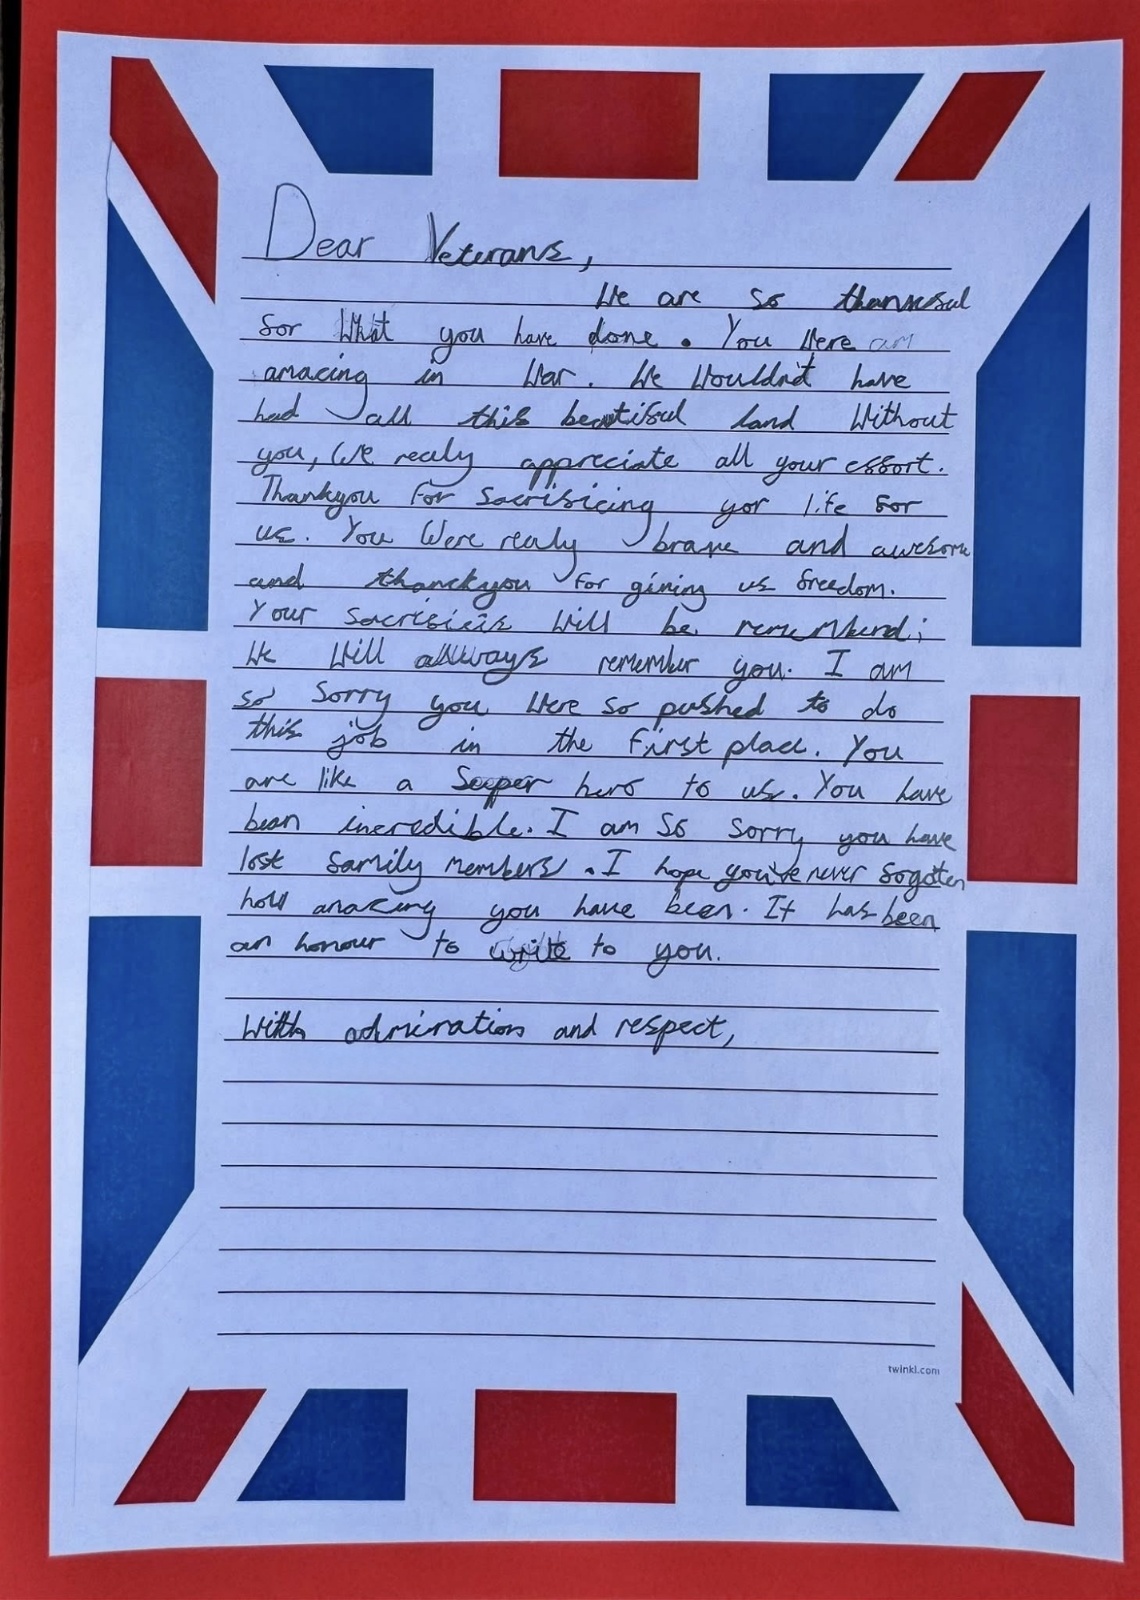 Dear Veterans,
We are so thankful
for what you have done. You were am
amazing in war. We wouldn't have
had all this beautiful land without
you, we realy appreciate all your effort.
Thankyou for sacrificing yor life for
us. You were realy brave and awesome
and thanckyou for giving us freedom.
Your sacrifisis will be remembend;
We will always remember you. I am
so sorry you were so pushed to do
this job in the first place. You
are like a super hero to us. You have
bean incredible. I am so sorry you have
lost family members. I hope you've never fogotten
how amazing you have been. It has been
an honour to write to you.
With admiration and respect,
twinkl.com